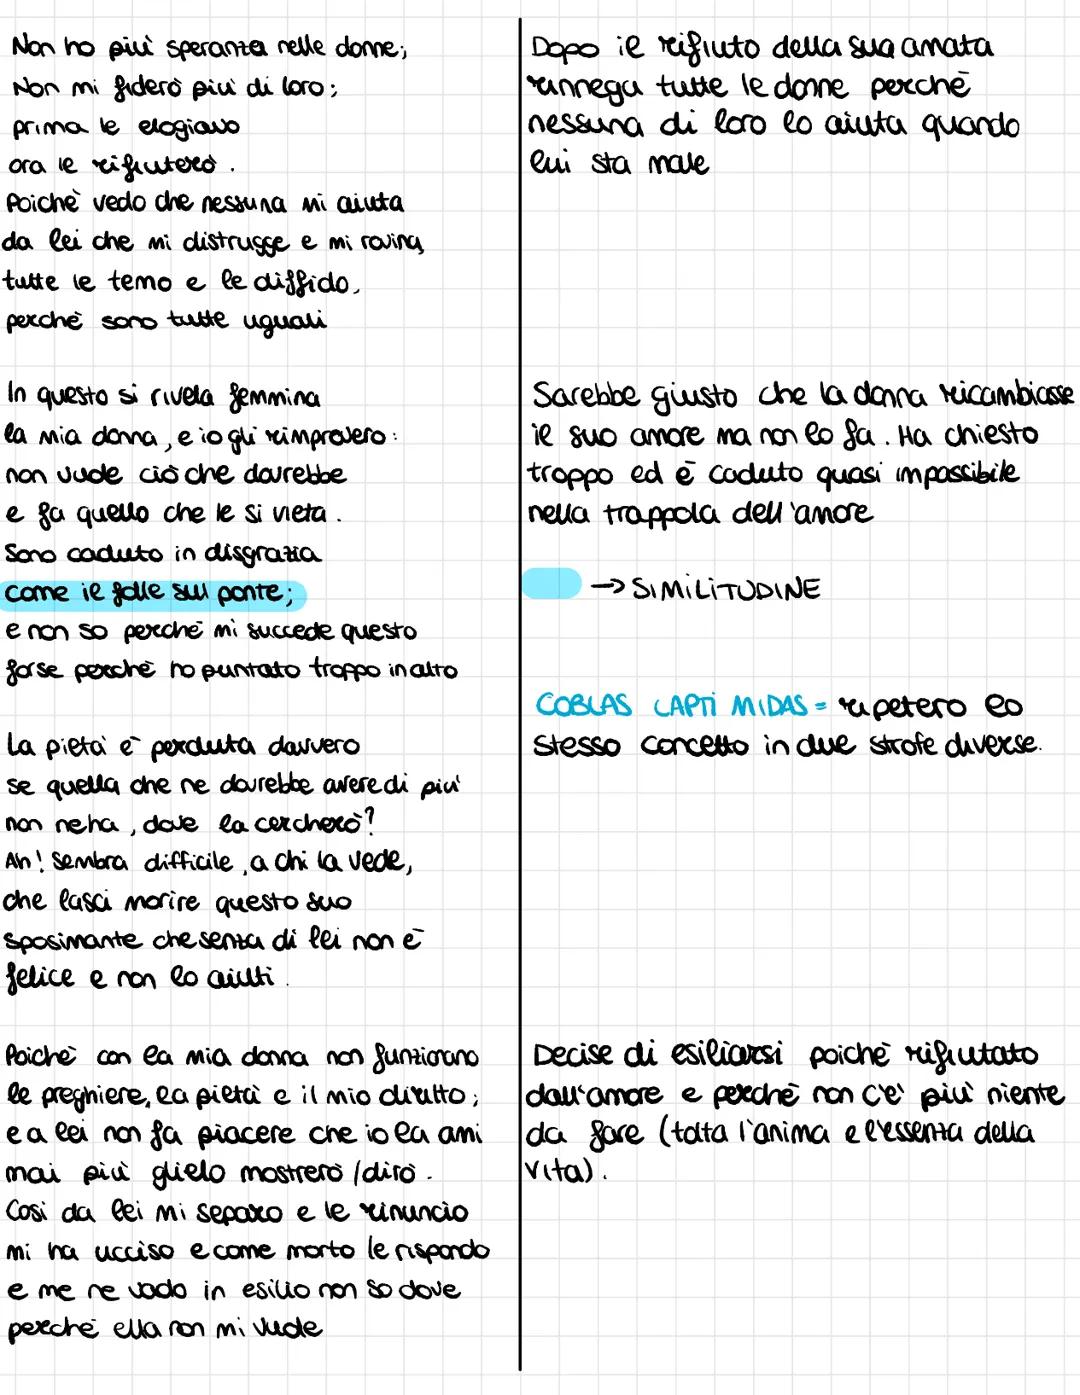 Non ho più speranza nelle donne;
Non mi fiderò più di loro;
prima le elogiavo
ora le rifiuterò.
Poichè vedo che nessuna mi aiuta
da lei che mi distrugge e mi rovina,
tutte le temo e le diffido,
perchè sono tutte uguali
Dopo il rifiuto della sua amata
rinnega tutte le donne perchè
nessuna di loro lo aiuta quando
lui sta male
In questo si rivela femmina
la mia donna, e io gli rimprovero:
non vuole ciò che dovrebbe
e fa quello che le si vieta.
Sono caduto in disgrazia
come il folle sul ponte;
e non so perchè mi succede questo
forse perchè ho puntato troppo in alto
Sarebbe giusto che la donna ricambiasse
il suo amore ma non lo fa. Ha chiesto
troppo ed è caduto quasi impossibile
nella trappola dell'amore
→ SIMILITUDINE
COBLAS CAPTI MIDAS = ripetero lo
stesso concetto in due strofe diverse.
La pietà è perduta davvero
se quella che ne dovrebbe avere di più
non ne ha, dove la cercherò?
Ah! Sembra difficile, a chi la vede,
che lasci morire questo suo
sposimante che senza di lei non è
felice e non lo aiuti.
Poichè con la mia donna non funzionano
le preghiere, la pietà e il mio diritto;
e a lei non fa piacere che io la ami
mai più glielo mostrerò/dirò.
Così da lei mi separo e le rinuncio
mi ha ucciso e come morto le rispondo
e me ne vado in esilio non so dove
perchè ella non mi vuole
Decise di esiliarsi poichè rifiutato
dall'amore e perchè non c'è più niente
da fare (tolta l'anima e l'essenza della
vita).